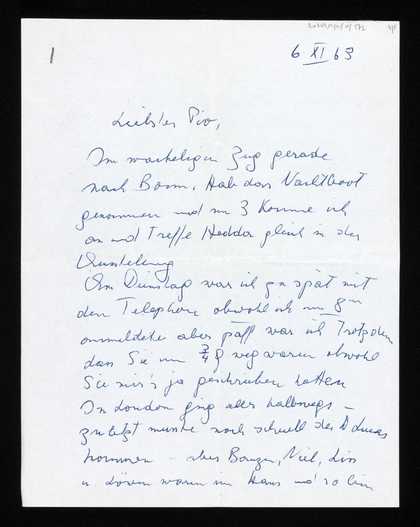 1
6 XI 63
Liebster Pio,
Im wackeligen Zug gerade
nach Bonn, Hab das Nachtboot
genommen und um 3 komme ich
an und Treffe Hedda gleich in der
Ausstellung
Am Dienstag war ich zu spät mit
den Telephon obwohl ich um 8
anmeldete aber paff war ich Trotzdem
dass Sie um 3/4 9 weg waren obwohl
Sie mir's ja geschrieben hatten
In London ging alles halbwegs –
zuletzt musste noch schnell der
kommen – aber
u. waren im Haus und so